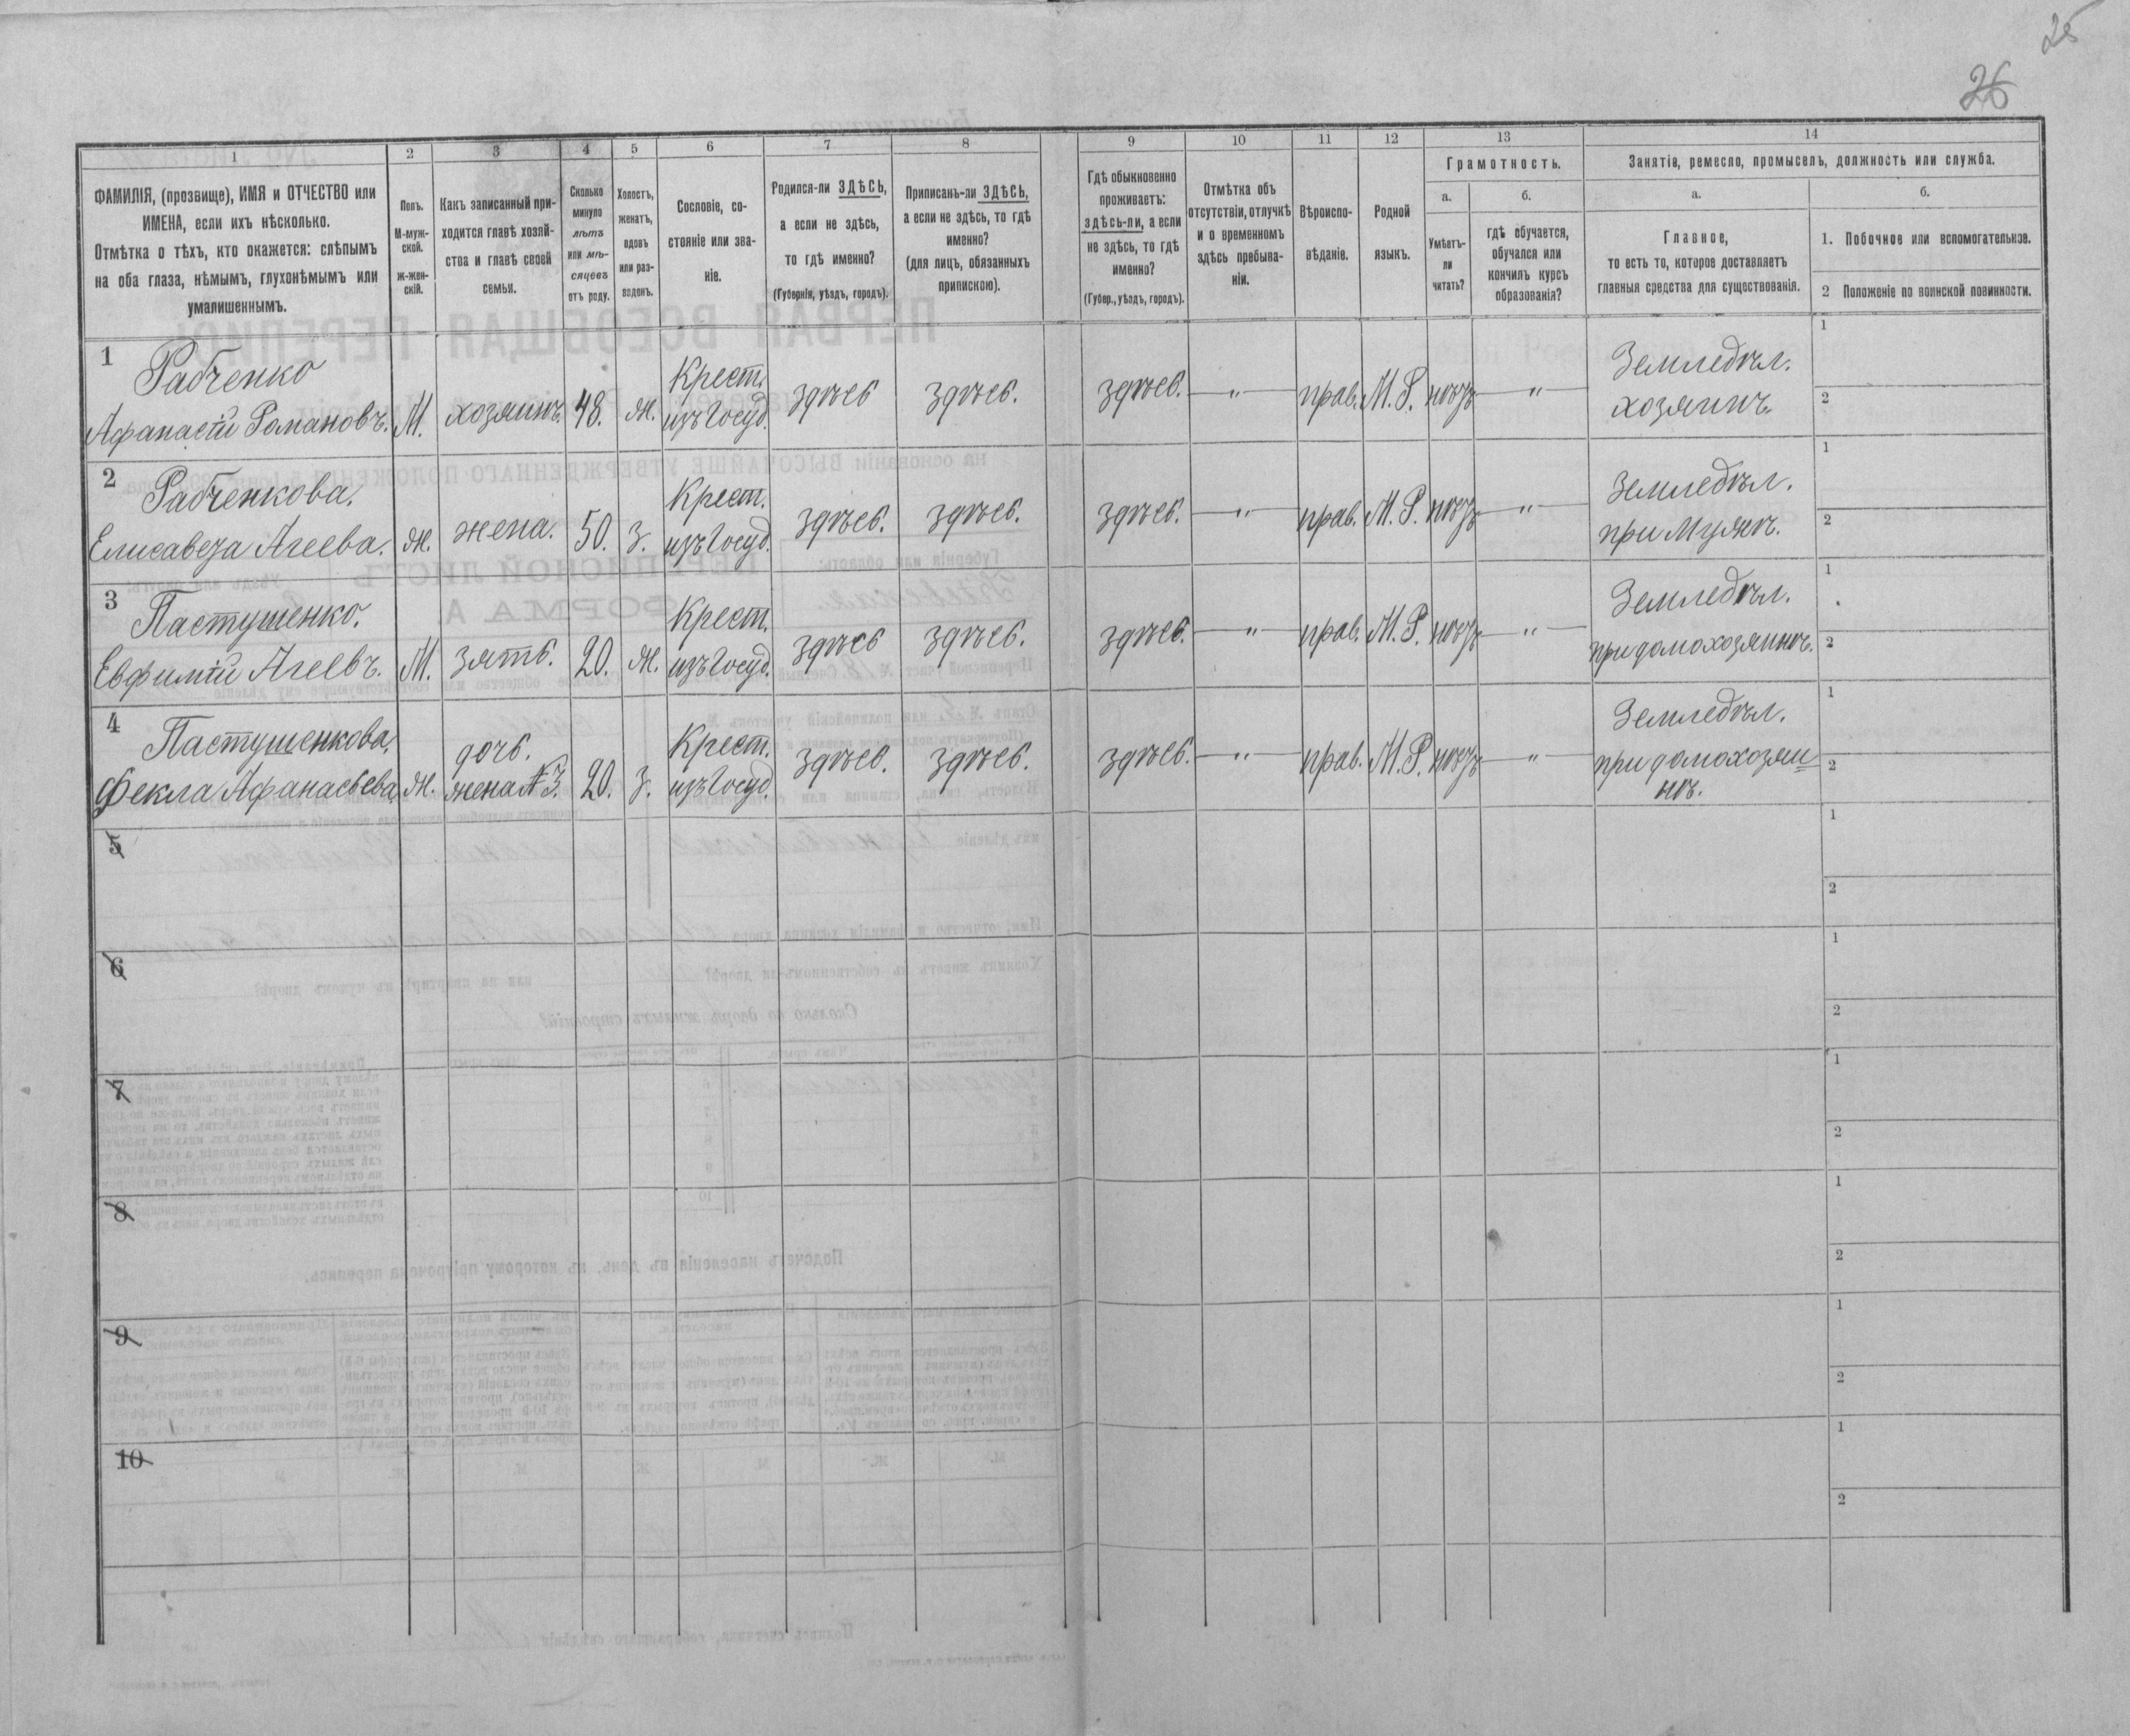 25
26
1
2
3
4
5
6
7
8
9
10
11
12
13
14
ФАМИЛІЯ, (прозвище), ИМЯ и ОТЧЕСТВО или
ИМЕНА, если ихъ нѣсколько.
Отмѣтка о тѣхъ, кто окажется: слѣпымъ
на оба глаза, нѣмымъ, глухонѣмымъ или
умалишеннымъ.
Полъ.
М-муж-
ской.
ж-жен-
скій.
Какъ записанный при-
ходится главѣ хозяй-
ства и главѣ своей
семьи.
Сколько
минуло
лѣтъ
или мѣ-
сяцевъ
отъ роду.
Холостъ,
женатъ,
вдовъ
или раз-
веденъ.
Сословіе, со-
стояніе или зва-
ніе.
Родился-ли ЗДѢСЬ,
а если не здѣсь,
то гдѣ именно?
(Губернія, уѣздъ, городъ).
Приписанъ-ли ЗДѢСЬ,
а если не здѣсь, то гдѣ
именно?
(для лицъ, обязанныхъ
припискою).
Гдѣ обыкновенно
проживаетъ:
здѣсь-ли, а если
не здѣсь, то гдѣ
именно?
(Губер., уѣздъ, городъ).
Отмѣтка объ
отсутствіи, отлучкѣ
и о временномъ
здѣсь пребыва-
ніи.
Вѣроиспо-
вѣданіе.
Родной
языкъ.
Грамотность.
а.
Умѣетъ-
ли
читать?
б.
гдѣ обучается,
обучался или
кончилъ курсъ
образованія?
Занятіе, ремесло, промыселъ, должность или служба.
а.
Главное,
то есть то, которое доставляетъ
главныя средства для существованія.
б.
1. Побочное или вспомогательное.
2 Положеніе по воинской повинности.
1
Рабченко
Афанасій Романовъ.
М.
хозяинъ.
48.
ж.
Крест.
изъ Госуд.
здѣсь
здѣсь.
здѣсь.
—"—
прав.
М.Р.
нѣтъ
—"—
Земледѣл.
хозяинъ.
1
2
2
Рабченкова.
Елисавеза Агеева.
ж.
жена.
50.
з.
Крест.
изъ Госуд.
здѣсь.
здѣсь.
здѣсь.
—"—
прав.
М.Р.
нѣтъ
—"—
Земледѣл.
при Мужѣ.
1
2
3
Пастушенко.
Евфимій Агеевъ.
М.
зять.
20.
ж.
Крест.
изъ Госуд.
здѣсь
здѣсь.
здѣсь.
—"—
прав.
М.Р.
нѣтъ
—"—
Земледѣл.
при домохозяинѣ.
1
2
4
Пастушенкова.
Фекла Афанасьева.
ж.
дочь.
жена №3.
20.
з.
Крест.
изъ Госуд.
здѣсь.
здѣсь.
здѣсь.
—"—
прав.
М.Р.
нѣтъ
—"—
Земледѣл.
при домохозяи=
нѣ.
1
2
5
1
2
6
1
2
7
1
2
8
1
2
9
1
2
10
1
2